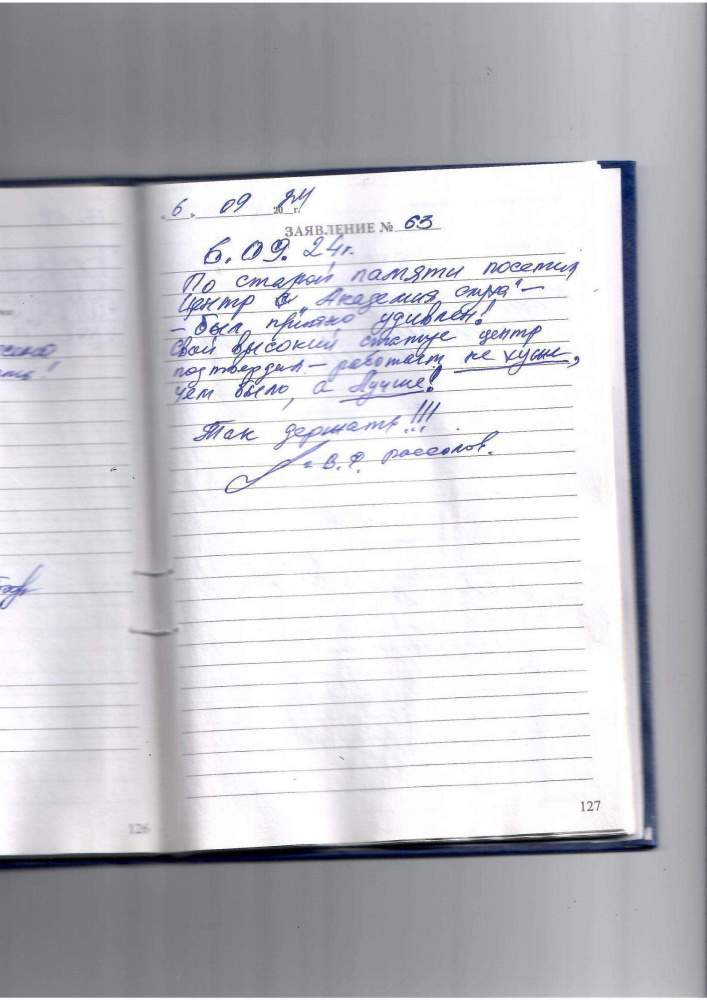 « 6 » 09 20 24 г.
ЗАЯВЛЕНИЕ № 63
6.09.24г.
По старой памяти посетил
Центр "Академия
- был приятно удивлен!
Свой высокий статус центр
подтвердил - работает не хуже,
чем было, а лучше!
Так держать!!!
В.Ф. Рассолов.
127
126